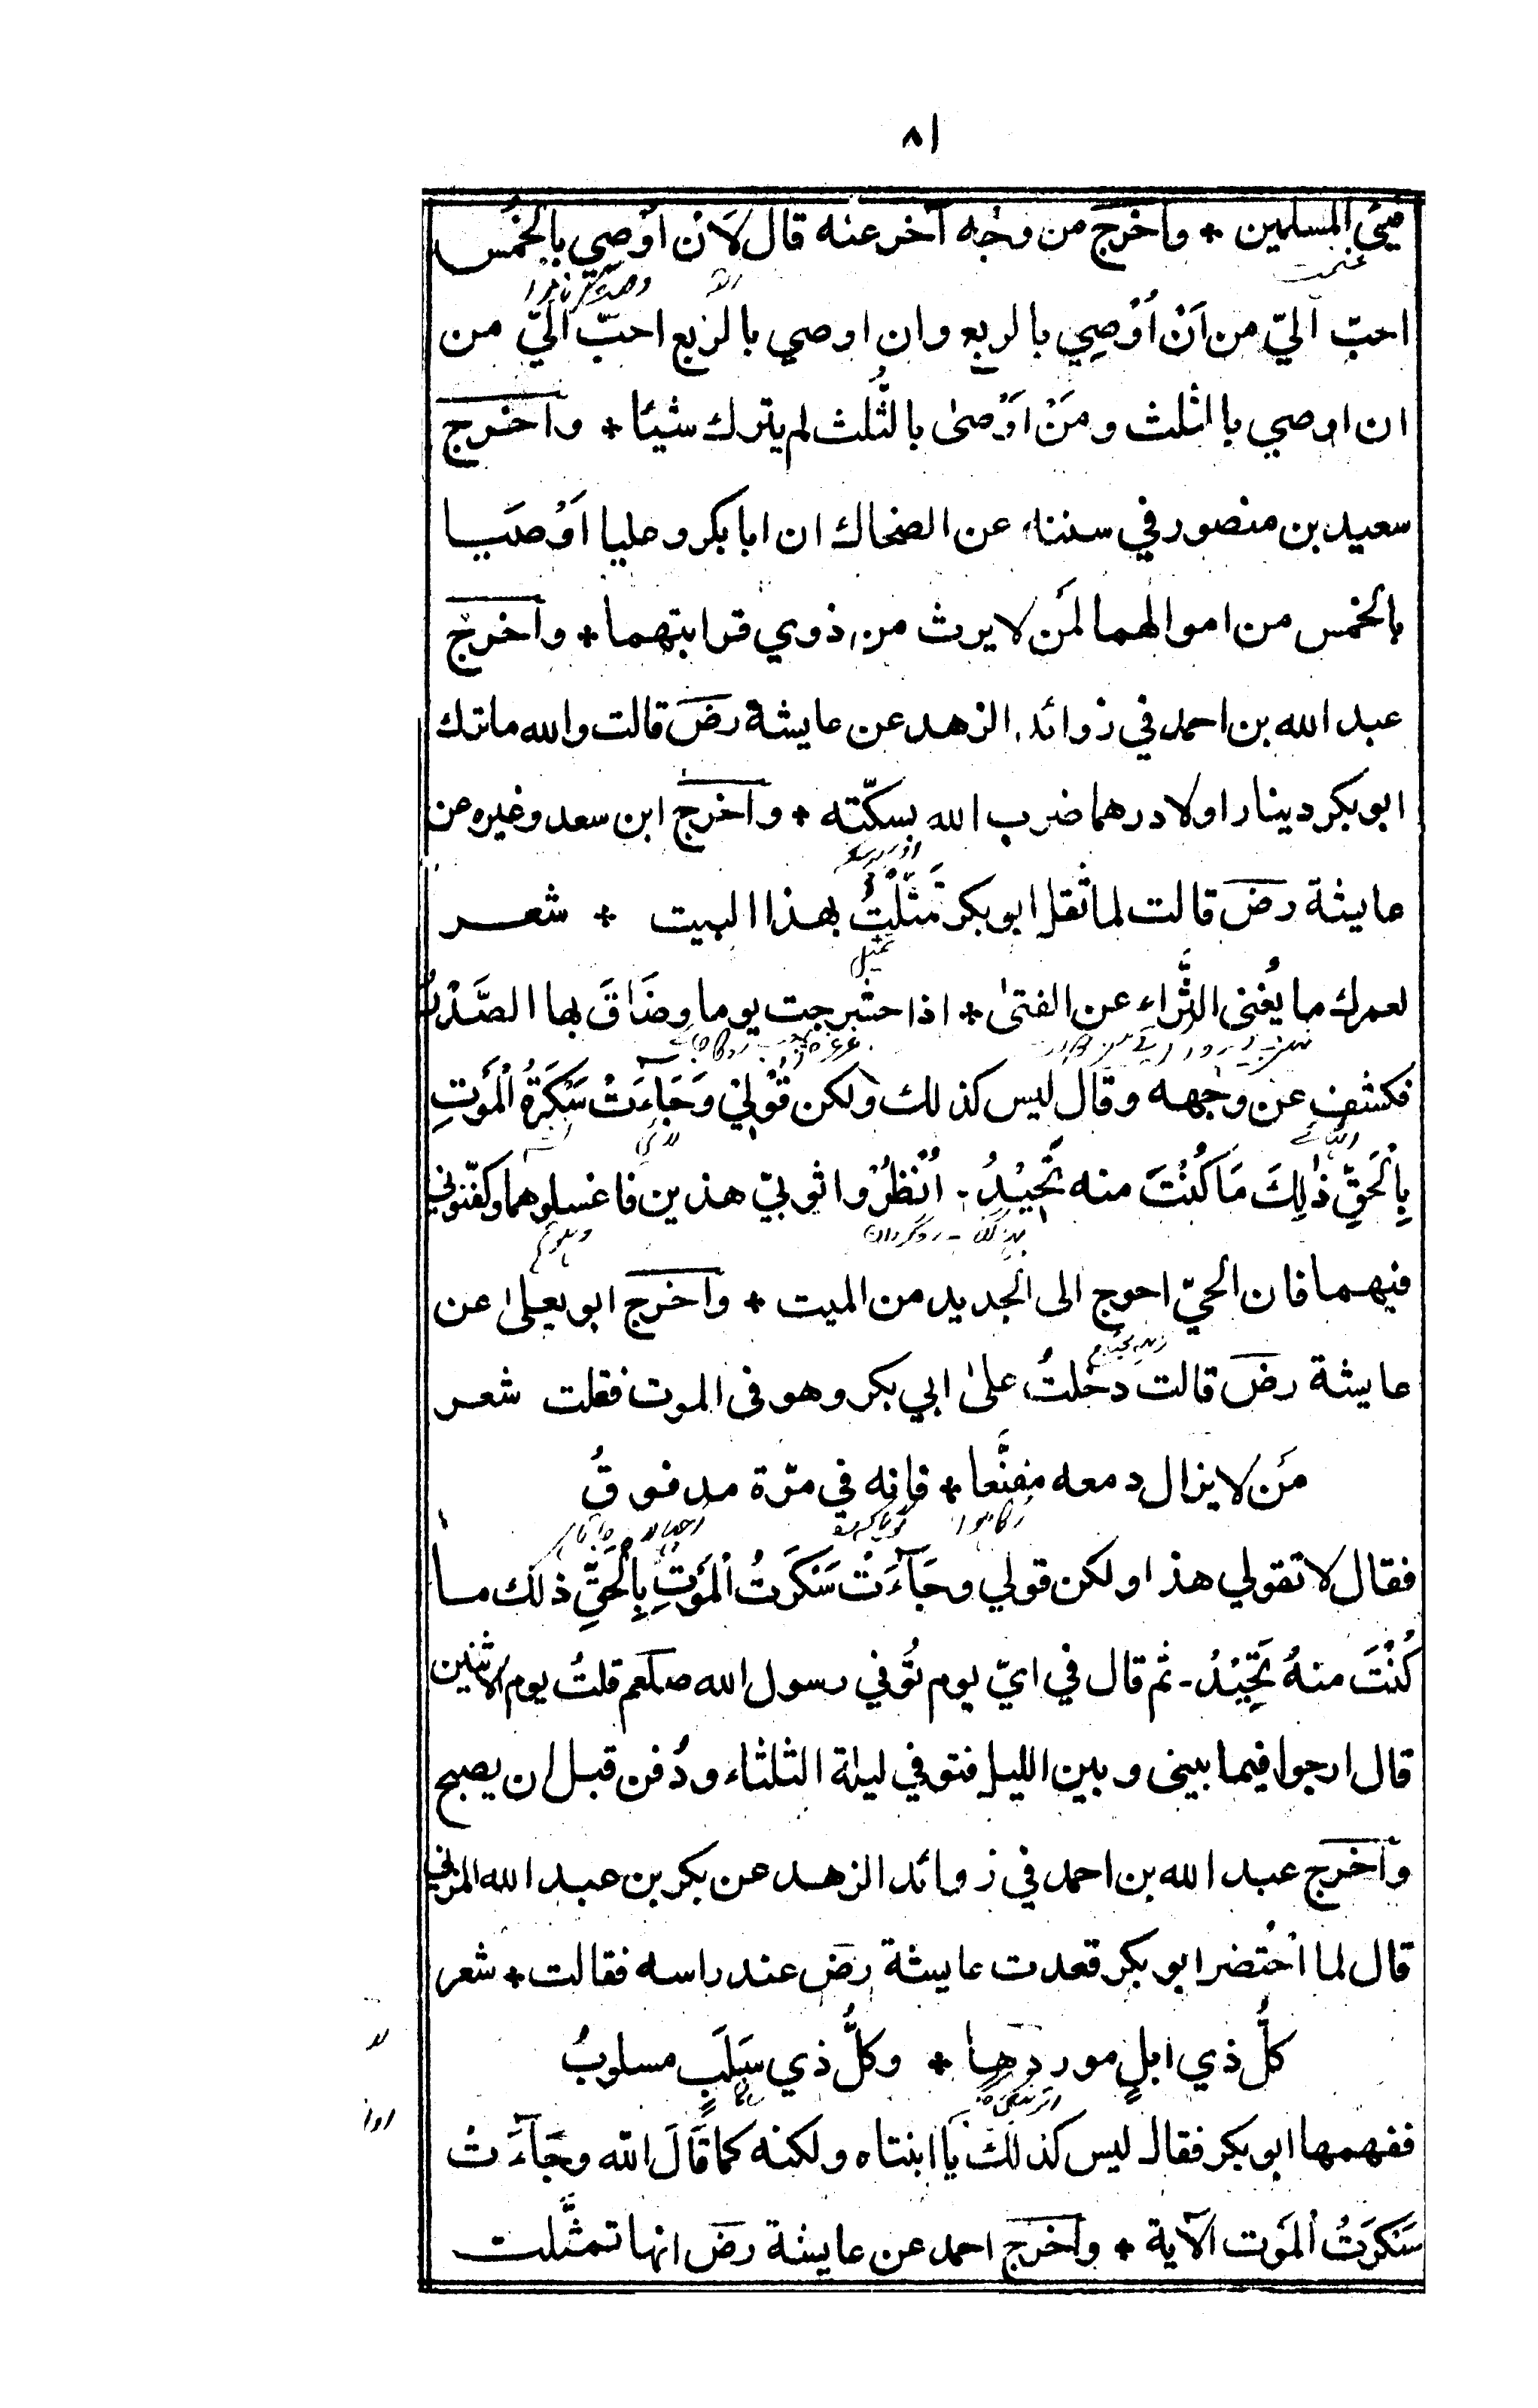 ٨١
فيئ المسلمين * واخرج من وجه آخر عنه قال لَاَنْ اُوْصِي بالخُمس
احبّ اليّ من اَنْ اُوْصِي بالربع وان اوصي بالربع احبّ اليّ من
ان اوصي بالثلث ومَنْ اَوْصٰى بالثُّلث لم يترك شيئا * واخرج
سعيد بن منصور في سننه عن الضحاك ان ابا بكر وعليا اَوْصَيا
بالخمس من اموالهما لمَن لا يرث من ذوي قرابتهما * واخرج
عبد الله بن احمد في زوائد الزهد عن عايشة رض قالت والله ما ترك
ابو بكر دينارا ولا درهما ضرب الله بسكّته * واخرج ابن سعد وغيره عن
عايشة رض قالت لما ثقل ابو بكر تَمَثَّلْتُ بهذا البيت * شعر
لعمرك ما يُغنى الثَّراء عن الفتىٰ * اذا حشرجت يوما وضَاقَ بها الصَّدْرُ
فكشف عن وجهه وقال ليس كذلك ولكن قُوْلِي وَجَآءَتْ سَكَرَةُ الْمَوْتِ
بِالْحَقِّ ذٰلِكَ مَا كُنْتَ منه تَحِيْدُ - اُنْظُرُوا ثوبيّ هذين فاغسلوهما وكفّنوني
فيهما فان الحيّ احوج الى الجديد من الميت * واخرج ابو يعلىٰ عن
عايشة رض قالت دخلتُ علىٰ ابي بكر وهو فى الموت فقلت شعر
مَن لا يزال دمعه مقنَّعا * فانه في مرّة مدفوقُ
فقال لا تقولي هذا ولكن قولي وجَآءَتْ سَكَرَتُ الْمَوْتِ بِالْحَقِّ ذلك ما
كُنْتَ منهُ تَحِيْدُ - ثم قال في ايّ يوم تُوفي رسول الله صلعم قلتُ يوم الاثنين
قال ارجوا فيما بينى وبين الليل فتوفي ليلة الثلثاء ودُفن قبل ان يصبح
واخرج عبد الله بن احمد في زوائد الزهد عن بكر بن عبد الله المزني
قال لما احُتضر ابو بكر قعدت عايشة رض عند راسه فقالت * شعر
كلُّ ذي ابلٍ موردها * وكلُّ ذي سَلَبٍ مسلوبُ
ففهمها ابو بكر فقال ليس كذلك يا ابنتاه ولكنه كما قَالَ الله وجَآءَتْ
سَكَرَتُ الْمَوْت الآية * واخرج احمد عن عايشة رض انها تمثَّلت